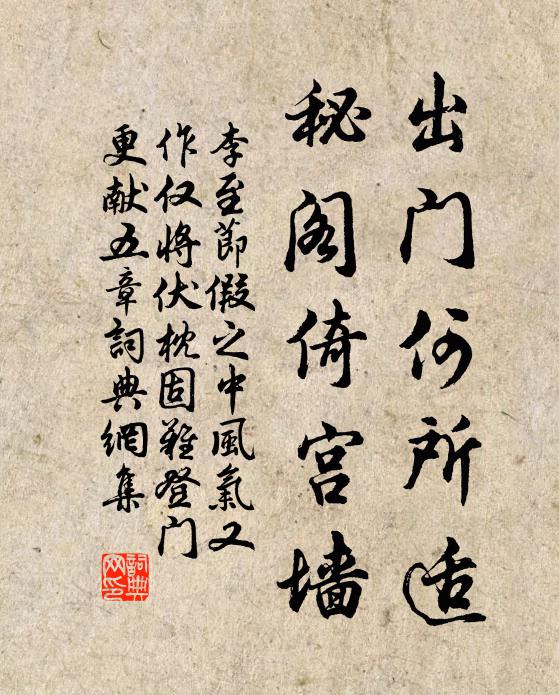 出门何所适
秘阁倚宫墙
李至節假之中風氣又
作仅将伏枕固難登门
更献五章詞典網集
詞典網印